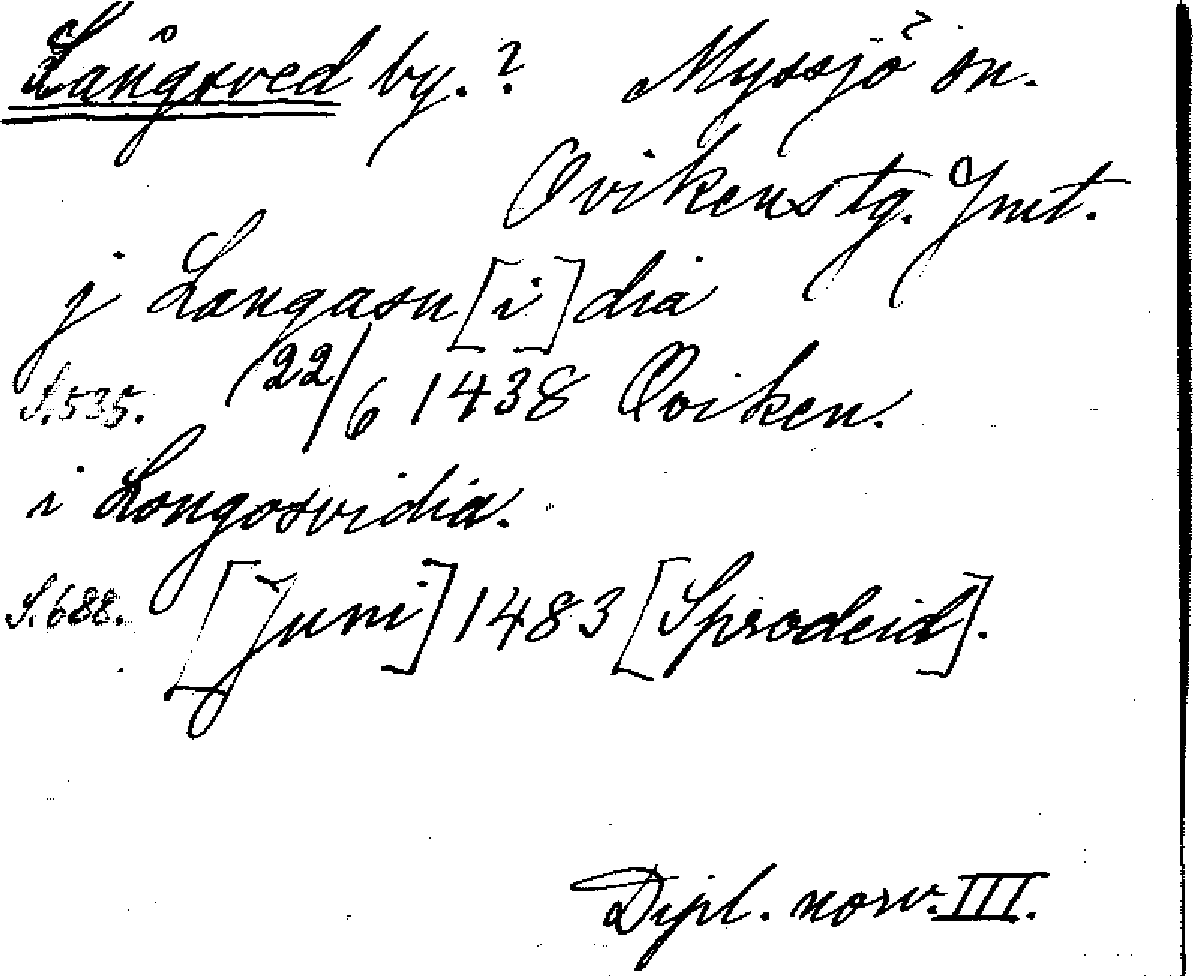 Långsved by.? Myssjö sn.
Ovikens tg. Jmt.
j Langasu[i]dia
S. 535. 22/6 1438 Oviken.
i Longosvidia.
S. 688. [Juni] 1483 [Sprodeid].
Dipl. norv. III.